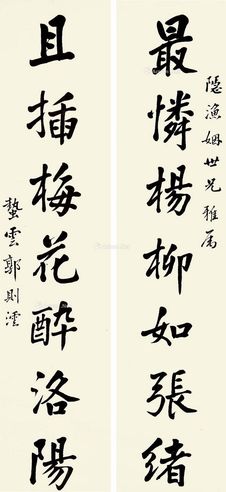 隱漁姻世兄雅属
最憐楊柳如張緒
且插梅花醉洛陽
蟄雲郭則澐